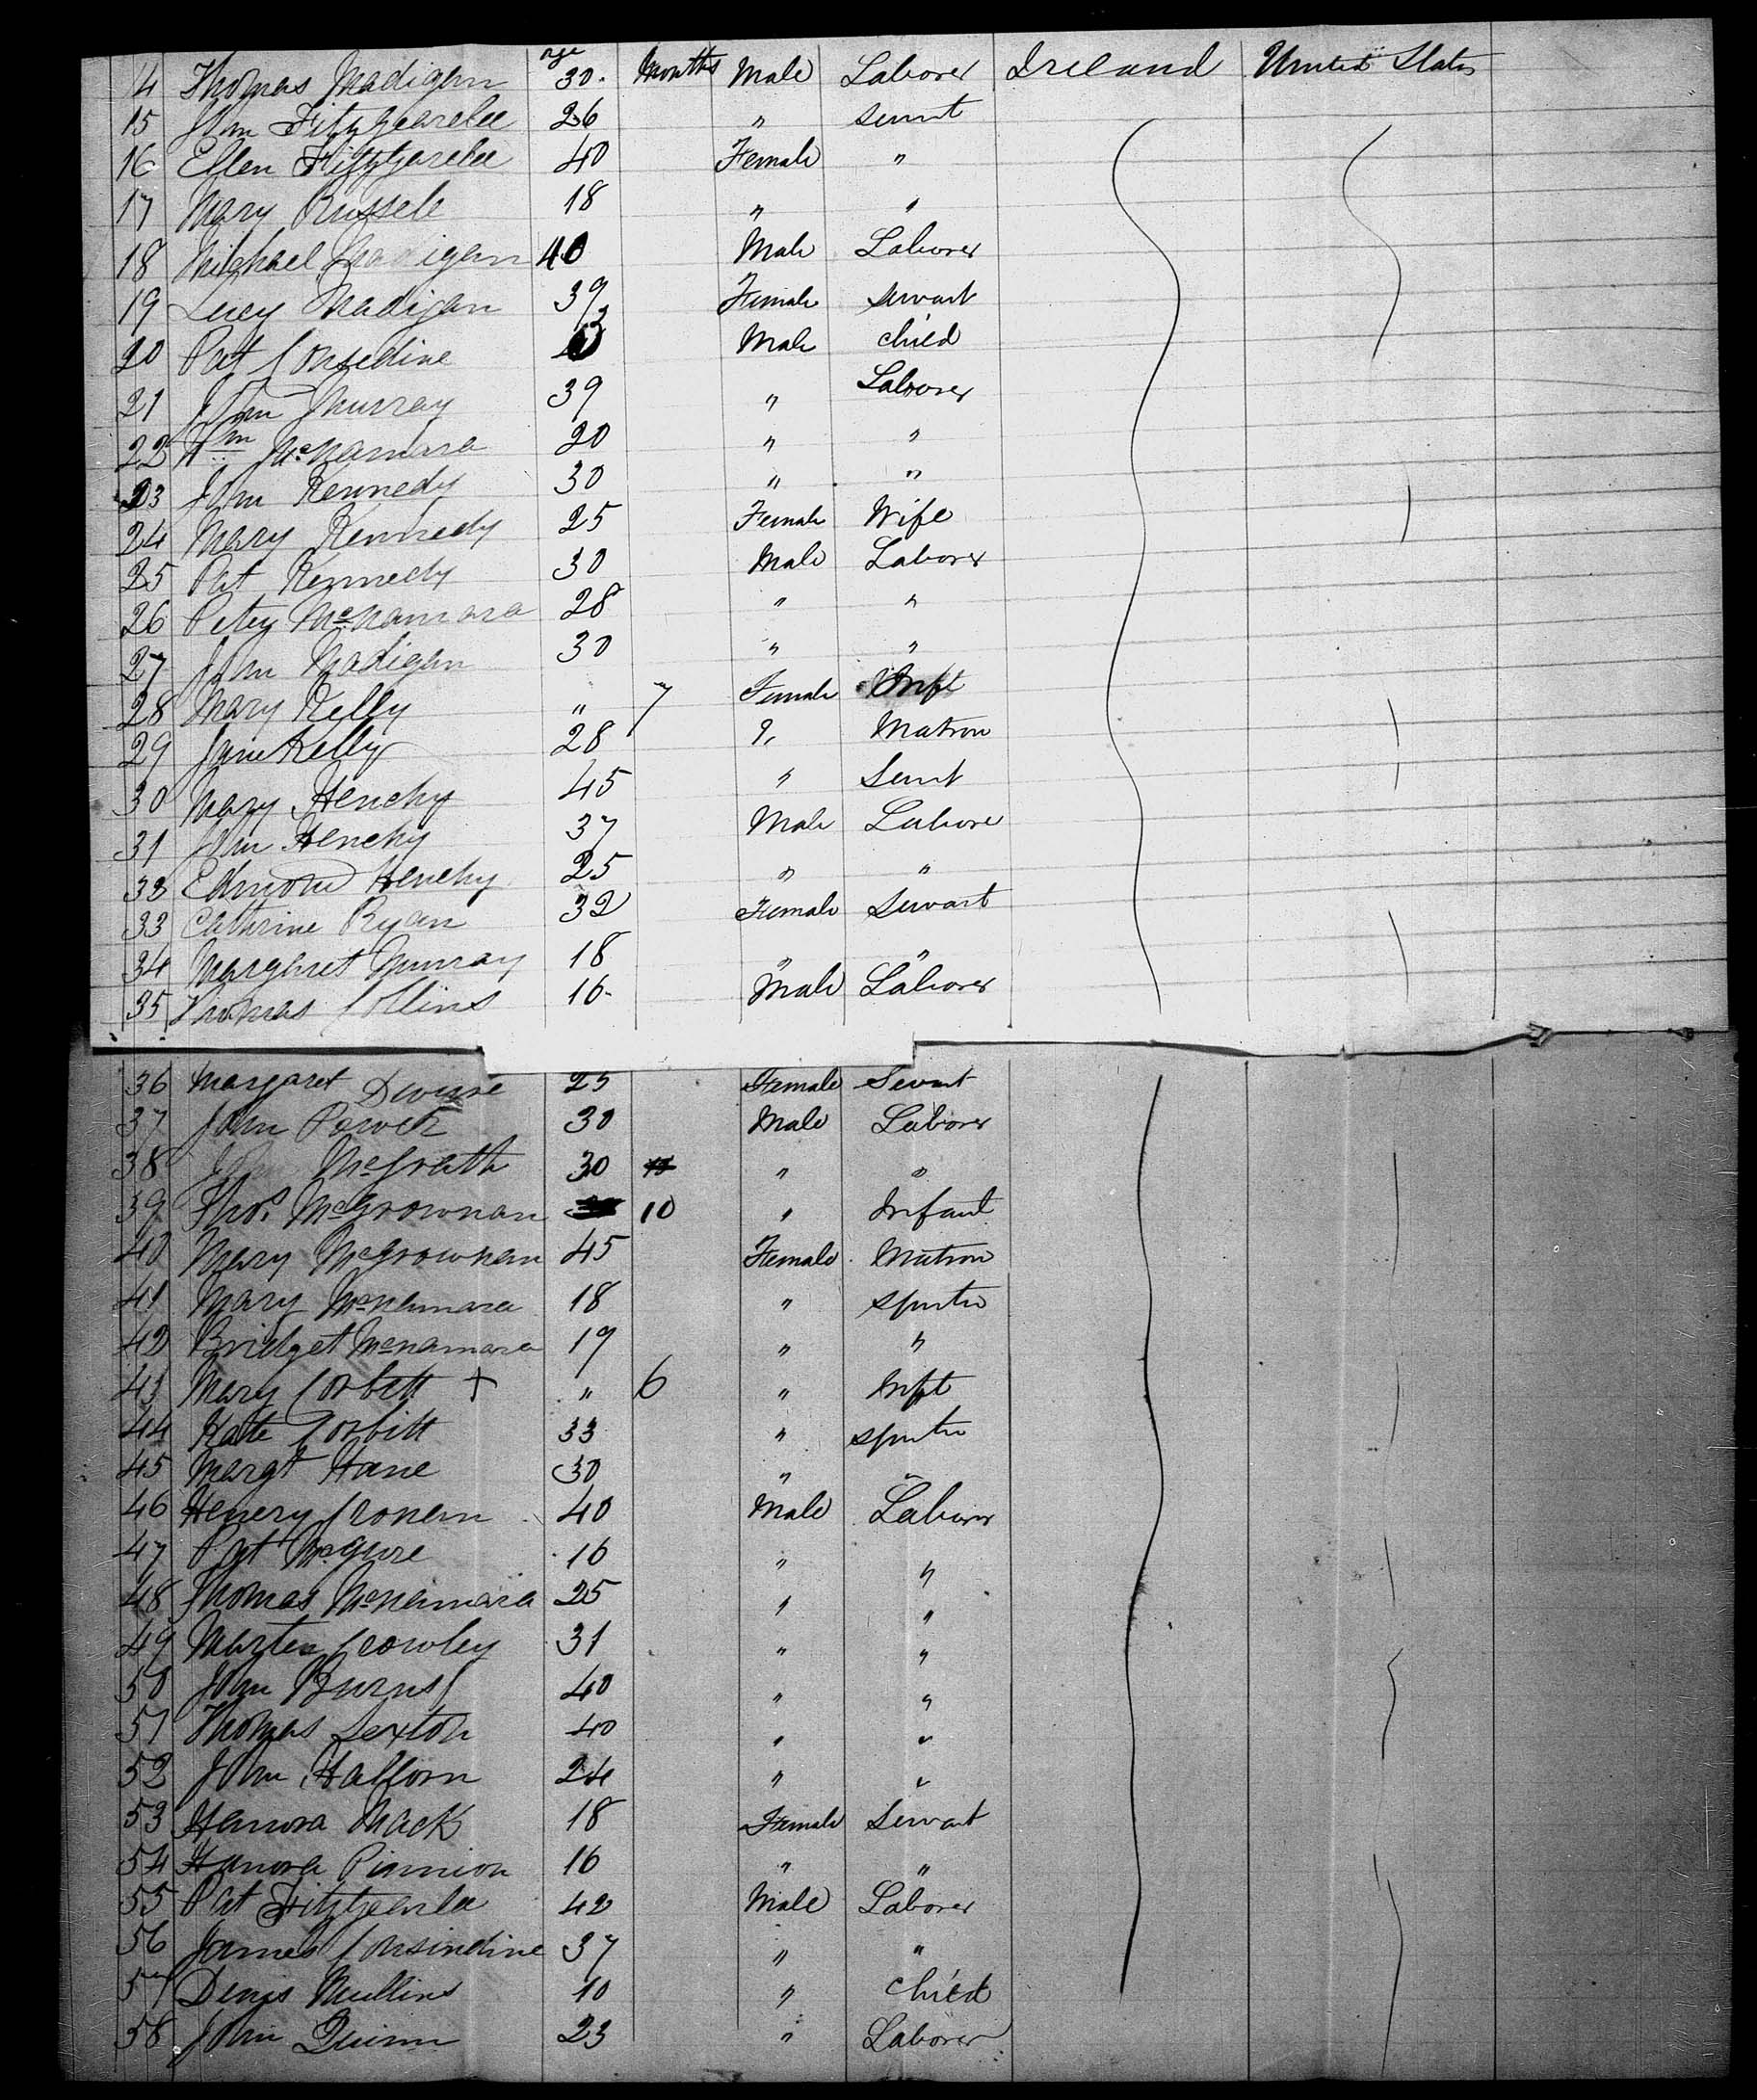 age
14 Thomas Madigan 30 Months Male Laborer Ireland United States
15 John Fitzgearelee 26 " servnt
16 Ellen Fitzgarelee 40 Female "
17 Mary Russele 18 " "
18 Michael Madigan 40 Male Laborer
19 Lucy Madigan 39 Female servant
20 Pat Consedine Male child
21 John Murray 39 " Laborer
22 Wm McNamara 20 " "
23 John Kennedy 30 " "
24 Mary Kennedy 25 Female Wife
25 Pat Kennedy 30 Male Laborer
26 Petey McNamara 28 " "
27 John Madigan 30 " "
28 Mary Kelly " 7 Female Inft
29 Jane Kelly 28 " Matron
30 Mary Henchy 45 " Servnt
31 John Henchy 37 Male Labore
32 Edmond Henchy 25 " "
33 Cathrine Ryan 32 Female Servant
34 Margaret Murray 18 " "
35 Thomas Collins 16 Male Laborer
36 Margaret 25 Female Servnt
37 John Power 30 Male Laborer
38 John McGrath 30 " "
39 Thos. McGrownan 10 " Infant
40 Mary McGrownan 45 Female Matron
41 Mary McNamara 18 " spnstr
42 Bridget McNamara 19 " "
43 Mary Corbett + " 6 " Inft
44 Kate Corbitt 33 " spnstr
45 Margt Hane 30 " "
46 Henery Cronan 40 Male Laborer
47 Pat McGuire 16 " "
48 Thomas McNamara 25 " "
49 Marten Crowley 31 " "
50 John Burns 40 " "
51 Thomas Sexton 40 " "
52 John Hallorn 24 " "
53 Hanora Mack 18 Female Servant
54 Hanora 16 " "
55 Pat Fitzgearlee 42 Male Laborer
56 James Consindine 37 " "
57 Denis Mullins 10 " Child
58 John Quinn 23 " Laborer